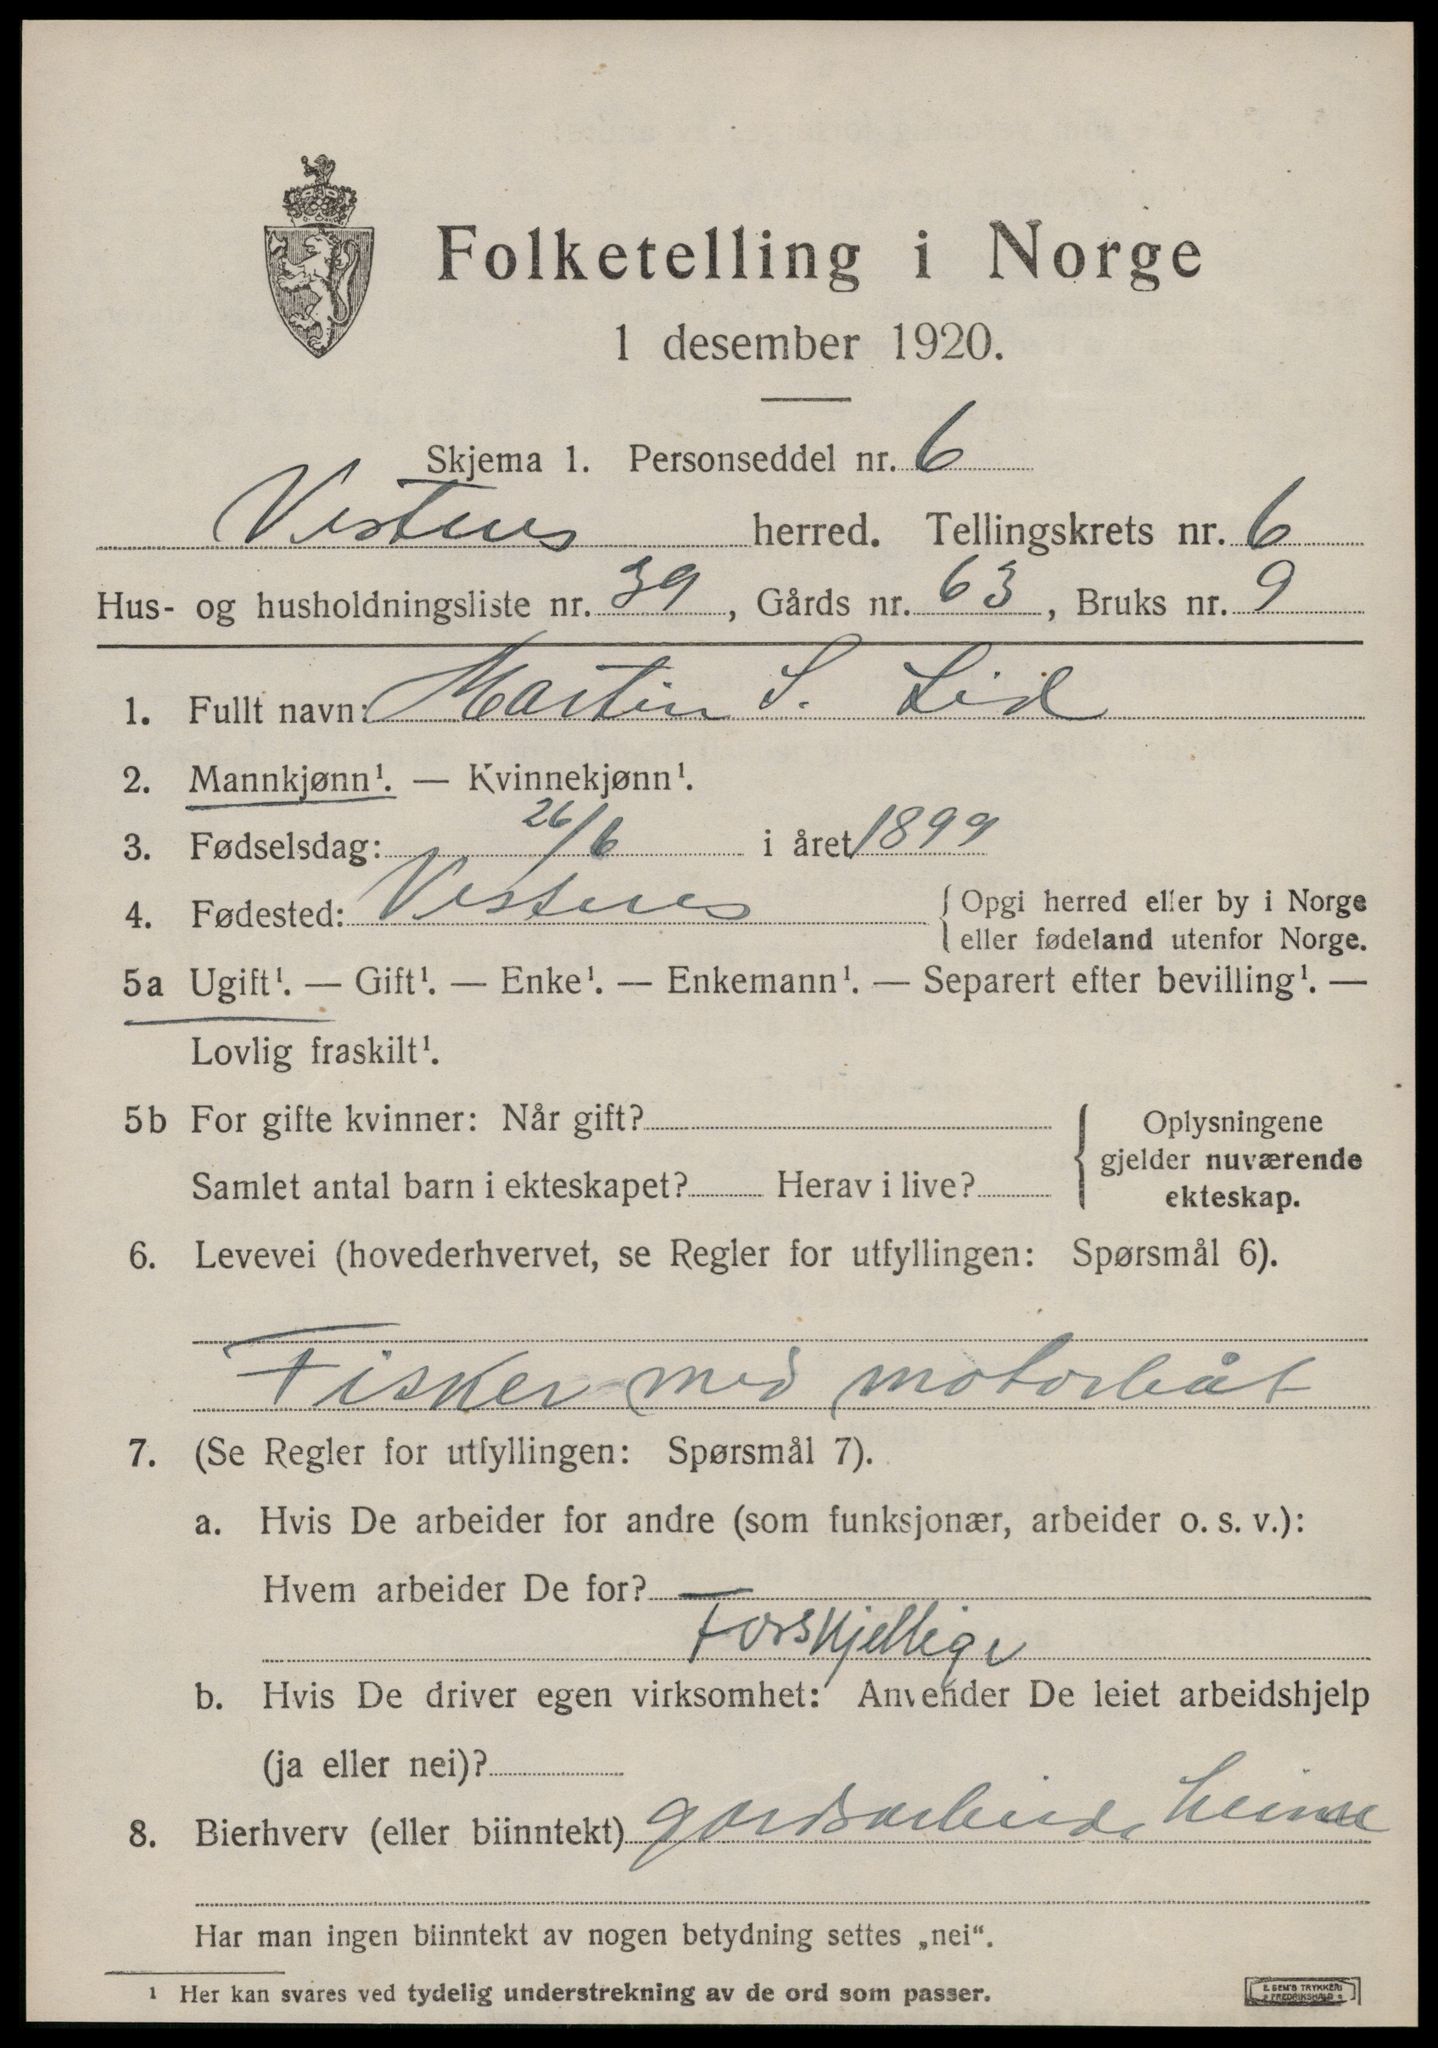 Folketelling i Norge
1 desember 1920.
Skjema 1. Personseddel nr. 6
Vestnes herred. Tellingskrets nr. 6
Hus- og husholdningsliste nr. 39, Gårds nr. 63, Bruks nr. 9
1. Fullt navn: Martin S. Lid
2. Mannkjønn¹. — Kvinnekjønn¹.
3. Fødselsdag: 26/6 i året 1899
4. Fødested: Vestnes { Opgi herred eller by i Norge
eller fødeland utenfor Norge.
5a Ugift¹. — Gift¹. — Enke¹. — Enkemann¹. — Separert efter bevilling¹. —
Lovlig fraskilt¹.
5b For gifte kvinner: Når gift?
Samlet antal barn i ekteskapet? Herav i live?
{ Oplysningene
gjelder nuværende
ekteskap.
6. Levevei (hovederhvervet, se Regler for utfyllingen: Spørsmål 6).
Fisker med motorbåt
7. (Se Regler for utfyllingen: Spørsmål 7).
a. Hvis De arbeider for andre (som funksjonær, arbeider o. s. v.):
Hvem arbeider De for?
Forskjellige
b. Hvis De driver egen virksomhet: Anvender De leiet arbeidshjelp
(ja eller nei)?
8. Bierhverv (eller biinntekt) gardsarbeide heime
Har man ingen biinntekt av nogen betydning settes „nei“.
¹ Her kan svares ved tydelig understrekning av de ord som passer.
E. SEM'S TRYKKERI
FREDRIKSHALD